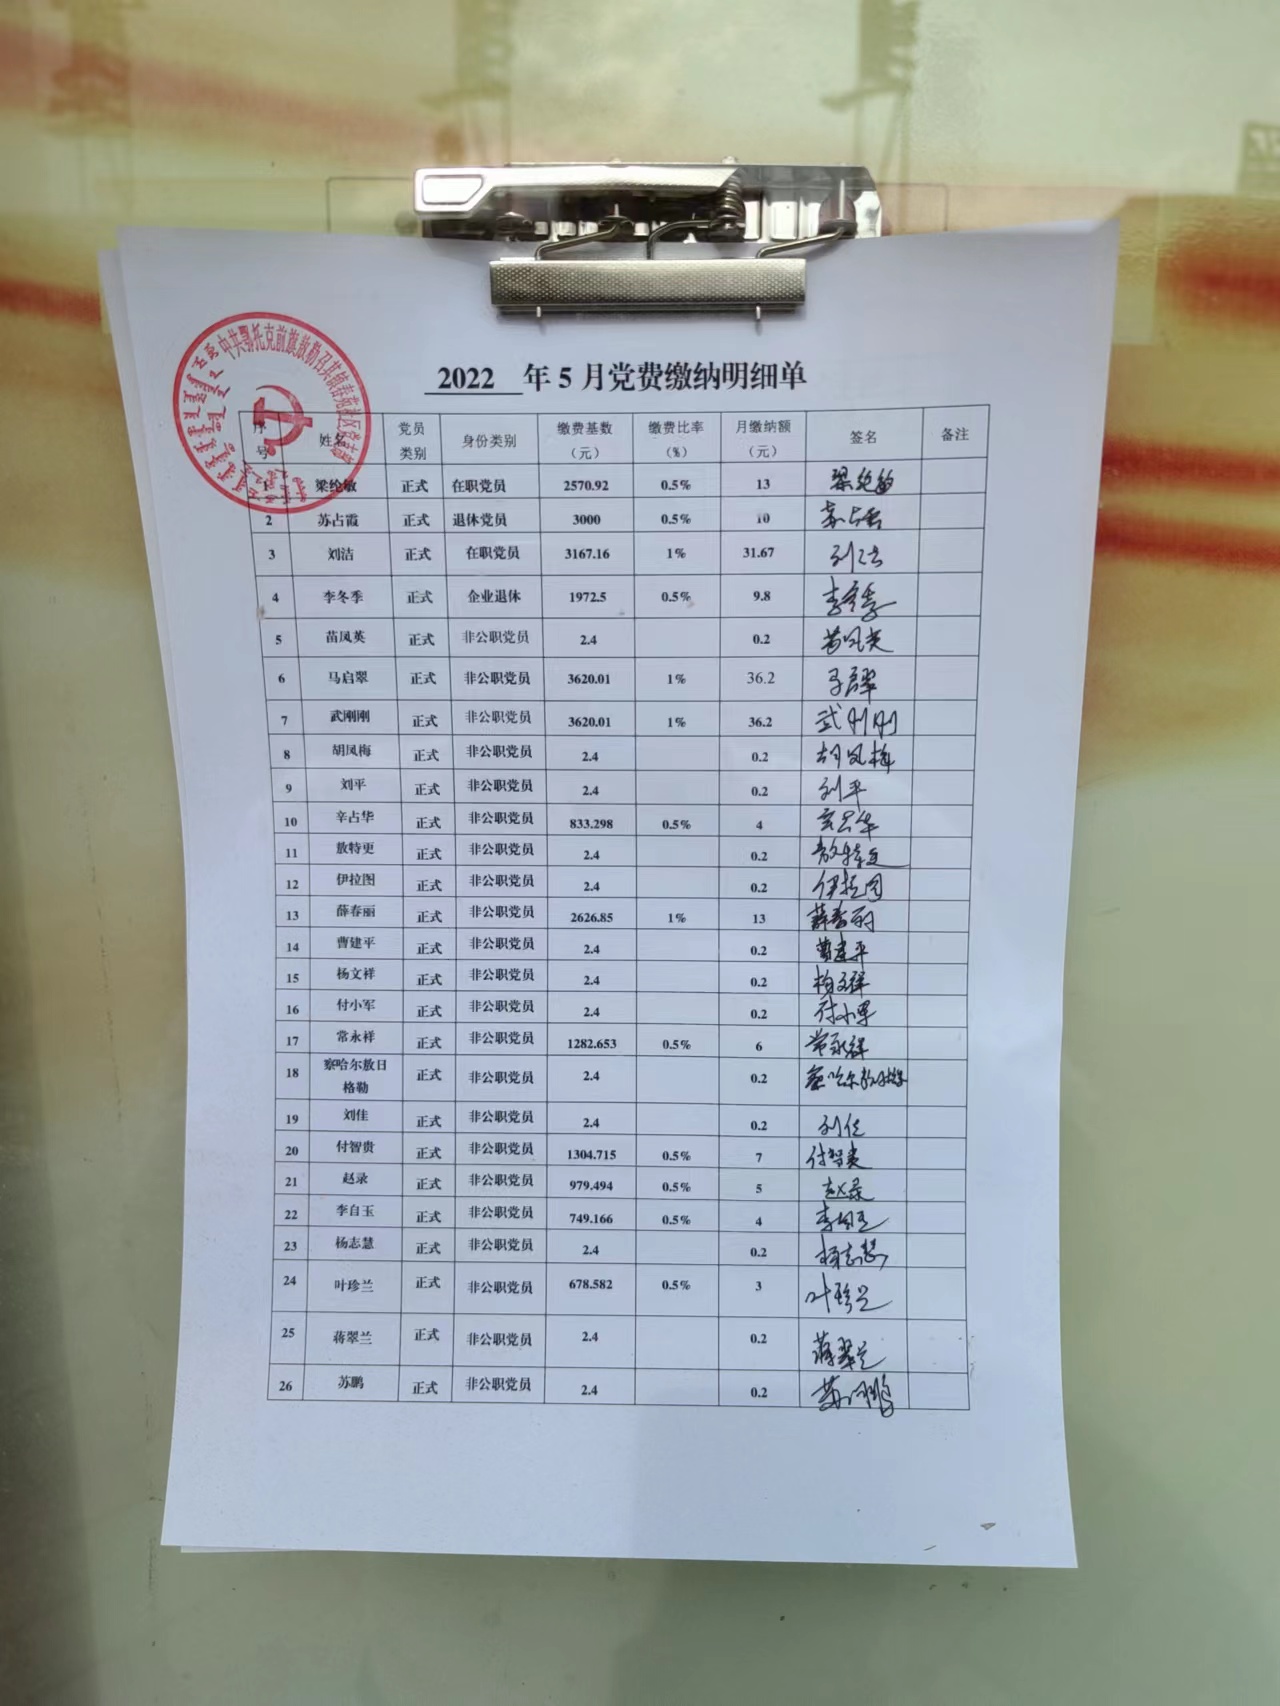 中共鄂托克前旗敖勒召其镇春苑社区
2022 年 5 月党费缴纳明细单
序号 姓名 党员类别 身份类别 缴费基数（元） 缴费比率（%） 月缴纳额（元） 签名 备注
1 梁纶敏 正式 在职党员 2570.92 0.5% 13 梁纶敏
2 苏占霞 正式 退休党员 3000 0.5% 10 苏占霞
3 刘洁 正式 在职党员 3167.16 1% 31.67 刘洁
4 李冬季 正式 企业退休 1972.5 0.5% 9.8 李冬季
5 苗凤英 正式 非公职党员 2.4 0.2 苗凤英
6 马启翠 正式 非公职党员 3620.01 1% 36.2 马启翠
7 武刚刚 正式 非公职党员 3620.01 1% 36.2 武刚刚
8 胡凤梅 正式 非公职党员 2.4 0.2 胡凤梅
9 刘平 正式 非公职党员 2.4 0.2 刘平
10 辛占华 正式 非公职党员 833.298 0.5% 4 辛占华
11 敖特更 正式 非公职党员 2.4 0.2 敖特更
12 伊拉图 正式 非公职党员 2.4 0.2 伊拉图
13 薛春丽 正式 非公职党员 2626.85 1% 13 薛春丽
14 曹建平 正式 非公职党员 2.4 0.2 曹建平
15 杨文祥 正式 非公职党员 2.4 0.2 杨文祥
16 付小军 正式 非公职党员 2.4 0.2 付小军
17 常永祥 正式 非公职党员 1282.653 0.5% 6 常永祥
18 察哈尔敖日格勒 正式 非公职党员 2.4 0.2 察哈尔敖日格勒
19 刘佳 正式 非公职党员 2.4 0.2 刘佳
20 付智贵 正式 非公职党员 1304.715 0.5% 7 付智贵
21 赵录 正式 非公职党员 979.494 0.5% 5 赵录
22 李自玉 正式 非公职党员 749.166 0.5% 4 李自玉
23 杨志慧 正式 非公职党员 2.4 0.2 杨志慧
24 叶珍兰 正式 非公职党员 678.582 0.5% 3 叶珍兰
25 蒋翠兰 正式 非公职党员 2.4 0.2 蒋翠兰
26 苏鹏 正式 非公职党员 2.4 0.2 苏鹏